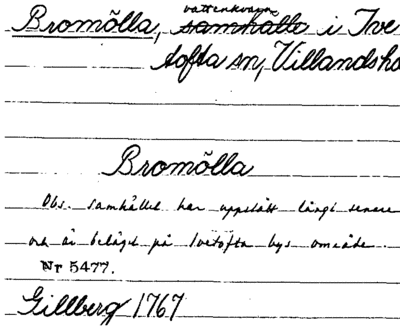 vattenkvarn
Bromõlla, samhälle i Ive
tofta sn, Villandshä
Bromõlla
Obs. samhället har uppstått långt senare
och är beläget på Ivetofta bys område.
Nr 5477.
Gillberg 1767